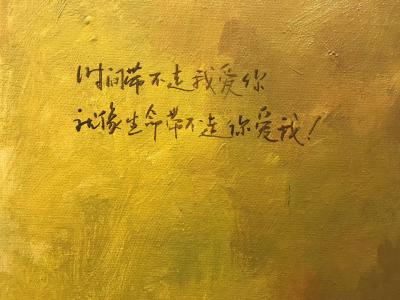 时间带不走我爱你
就像生命带不走你爱我！